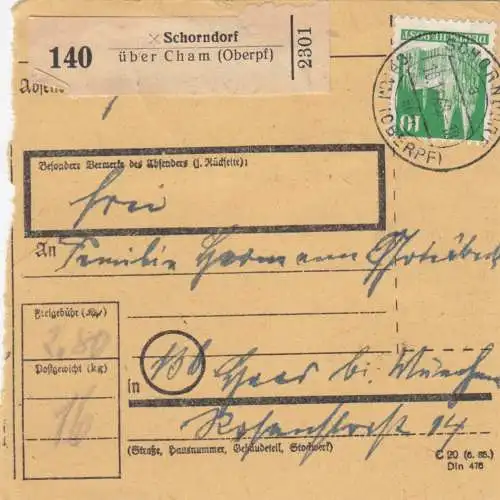 140
× Schorndorf
über Cham (Oberpf)
2301
DEUTSCHE POST
10
(OBERPF)
Besondere Vermerke des Absenders (s. Rückseite):
frei
An Familie Hermann
Freigebühr (Rpf)
3,80
Postgewicht (kg)
16
in (13b) Haar bei München
Rosenstraße 14
(Straße, Hausnummer, Gebäudeteil, Stockwerk)
C 20 (6. 66.)
Din 476